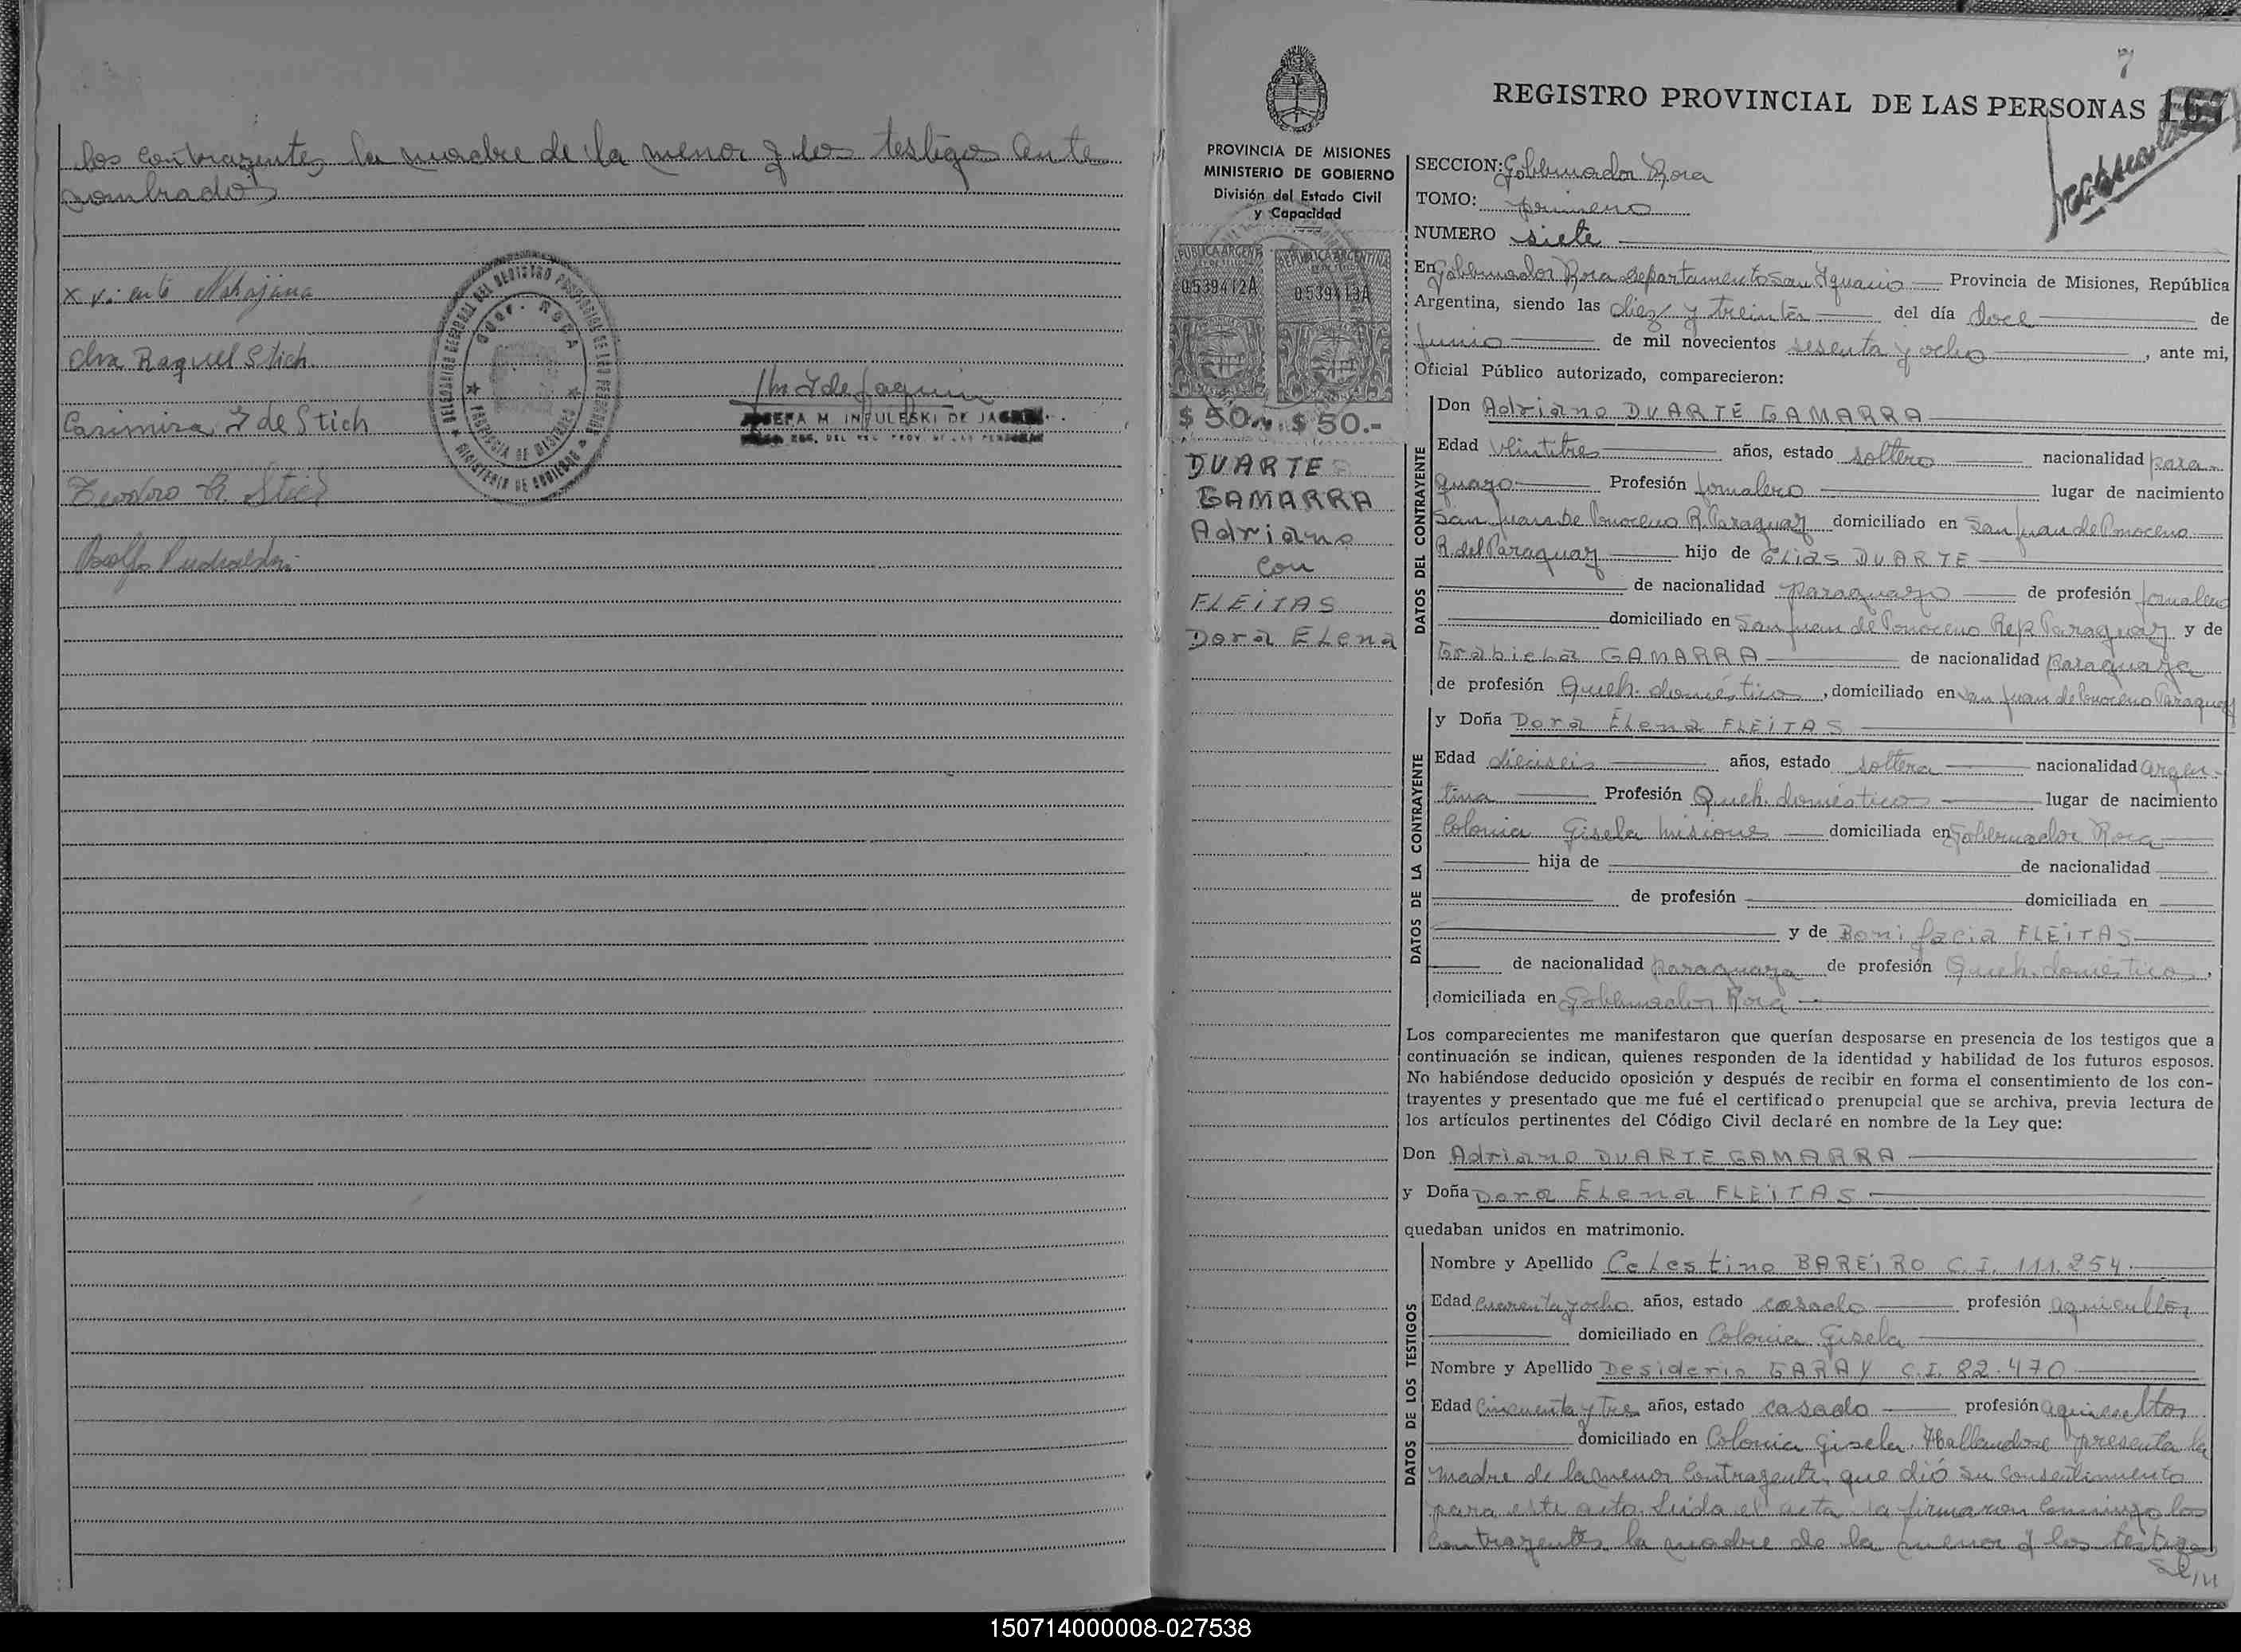 los contrayentes la madre de la menor y los testigos ante
nombrados
Elva Raquel Stich.
Casimira I de Stich
JOSEFA M. INFULESKI DE JAGUIN
7
REGISTRO PROVINCIAL DE LAS PERSONAS
PROVINCIA DE MISIONES
MINISTERIO DE GOBIERNO
División del Estado Civil
y Capacidad
0539412A
0539413A
$ 50.- $ 50.-
DUARTE
GAMARRA
Adriano
con
FLEITAS
Dora ELena
SECCION: Gobernador Roca
TOMO: primero
NUMERO siete
En Gobernador Roca departamento San Ignacio Provincia de Misiones, República
Argentina, siendo las diez y treinta del día doce de
Junio de mil novecientos sesenta y ocho, ante mi,
Oficial Público autorizado, comparecieron:
DATOS DEL CONTRAYENTE
Don Adriano DUARTE GAMARRA
Edad veintitres años, estado soltero nacionalidad para-
guayo Profesión Jornalero lugar de nacimiento
San Juan de R. Paraguay domiciliado en San Juan de
R. del Paraguay hijo de ELias DUARTE
de nacionalidad paraguayo de profesión Jornalero
domiciliado en San Juan de Rep Paraguay y de
GrabieLa GAMARRA de nacionalidad paraguaya
de profesión Queh. domésticos, domiciliado en San Juan de Paraguay
DATOS DE LA CONTRAYENTE
y Doña Dora ELena FLEITAS
Edad dieciseis años, estado soltera nacionalidad argen-
tina Profesión Queh. domésticos lugar de nacimiento
Colonia Gisela Misiones domiciliada en Gobernador Roca
hija de de nacionalidad
de profesión domiciliada en
y de Bonifacia FLEITAS
de nacionalidad paraguaya de profesión Queh. domésticos,
domiciliada en Gobernador Roca
Los comparecientes me manifestaron que querían desposarse en presencia de los testigos que a
continuación se indican, quienes responden de la identidad y habilidad de los futuros esposos.
No habiéndose deducido oposición y después de recibir en forma el consentimiento de los con-
trayentes y presentado que me fué el certificado prenupcial que se archiva, previa lectura de
los artículos pertinentes del Código Civil declaré en nombre de la Ley que:
Don Adriano DUARTE GAMARRA
y Doña Dora ELena FLEITAS
quedaban unidos en matrimonio.
DATOS DE LOS TESTIGOS
Nombre y Apellido CeLestino BAREiRO C.I. 111.254
Edad cuarenta y ocho años, estado casado profesión agricultor
domiciliado en Colonia Gisela
Nombre y Apellido Desiderio GARAY C.I. 82.470
Edad Cincuenta y tres años, estado casado profesión agricultor
domiciliado en Colonia Gisela. Hallandose presenta la
madre de la menor Contrayente, que dió su consentimiento
para este acto. Leida el acta la firmaron conmigo los
Contrayentes la madre de la menor y los testigos
150714000008-027538